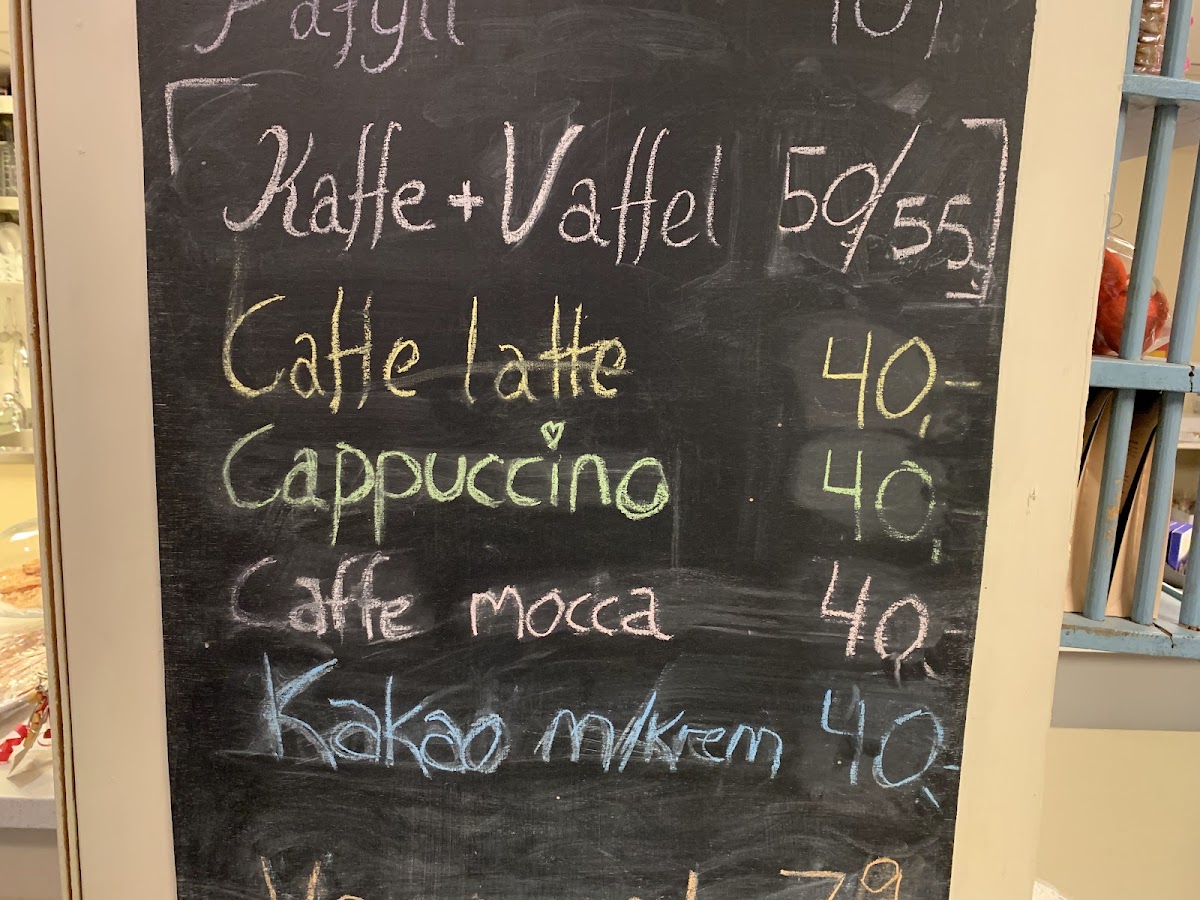 Påfyll 10,
Kaffe + Vaffel 50/55
Caffe latte 40,-
Cappuccino 40,-
Caffe mocca 40,-
Kakao m/krem 40,-
79